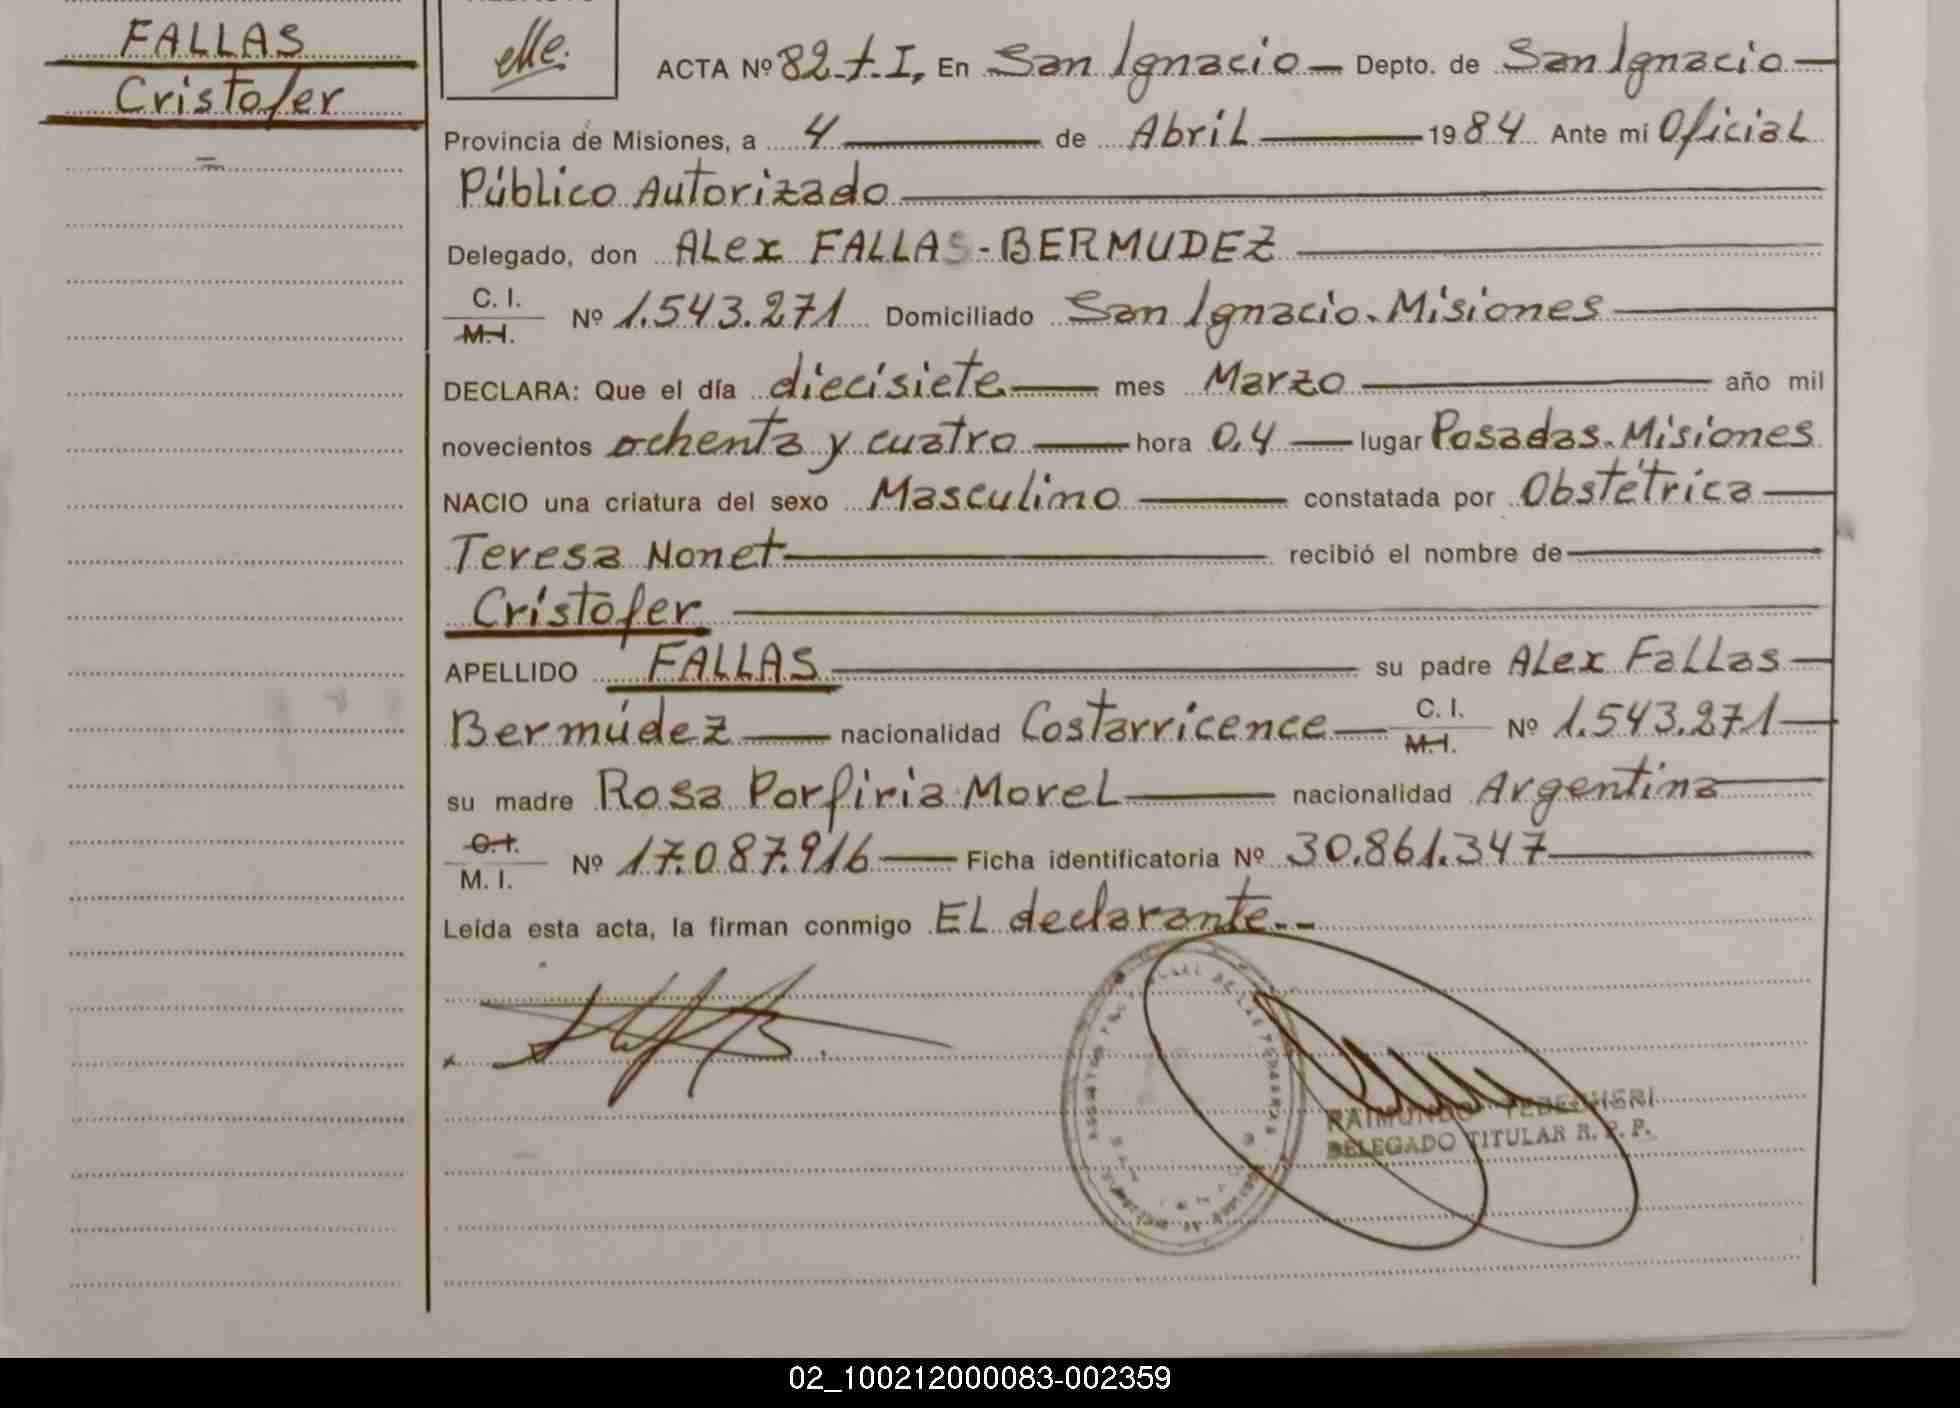 FALLAS
Cristofer
=
elle.
ACTA Nº 82-t-I, En San Ignacio — Depto. de San Ignacio —
Provincia de Misiones, a 4 — de Abril — 1984 Ante mi Oficial
Público Autorizado —
Delegado, don ALex FALLAS-BERMUDEZ —
C. I.
M. I. Nº 1.543.271 Domiciliado San Ignacio-Misiones —
DECLARA: Que el día diecisiete — mes Marzo — año mil
novecientos ochenta y cuatro — hora 0,4 — lugar Posadas-Misiones
NACIO una criatura del sexo Masculino — constatada por Obstétrica —
Teresa Nonet — recibió el nombre de —
Cristofer —
APELLIDO FALLAS — su padre ALex FaLLas —
Bermúdez — nacionalidad Costarricence — C. I. M. I. Nº 1.543.271 —
su madre Rosa Porfiria MoreL — nacionalidad Argentina —
C. I.
M. I. Nº 17.087.916 — Ficha identificatoria Nº 30.861.347 —
Leída esta acta, la firman conmigo EL declarante--
RAIMUNDO
DELEGADO TITULAR R. P. P.
02_100212000083-002359